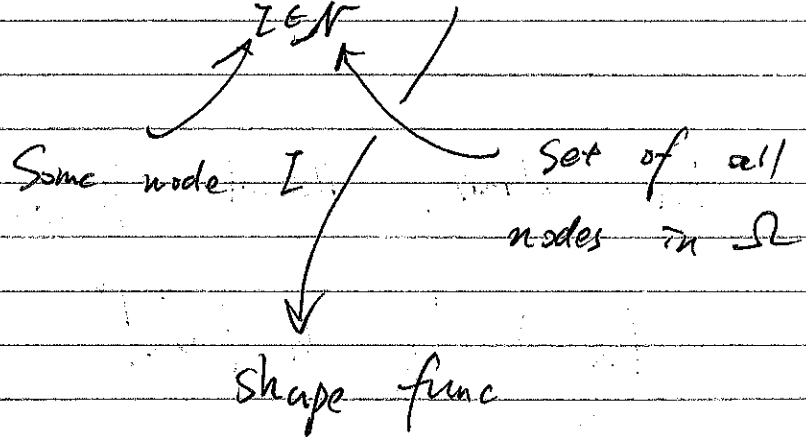 I ∈ N
Some node I
set of all
nodes in Ω
shape func